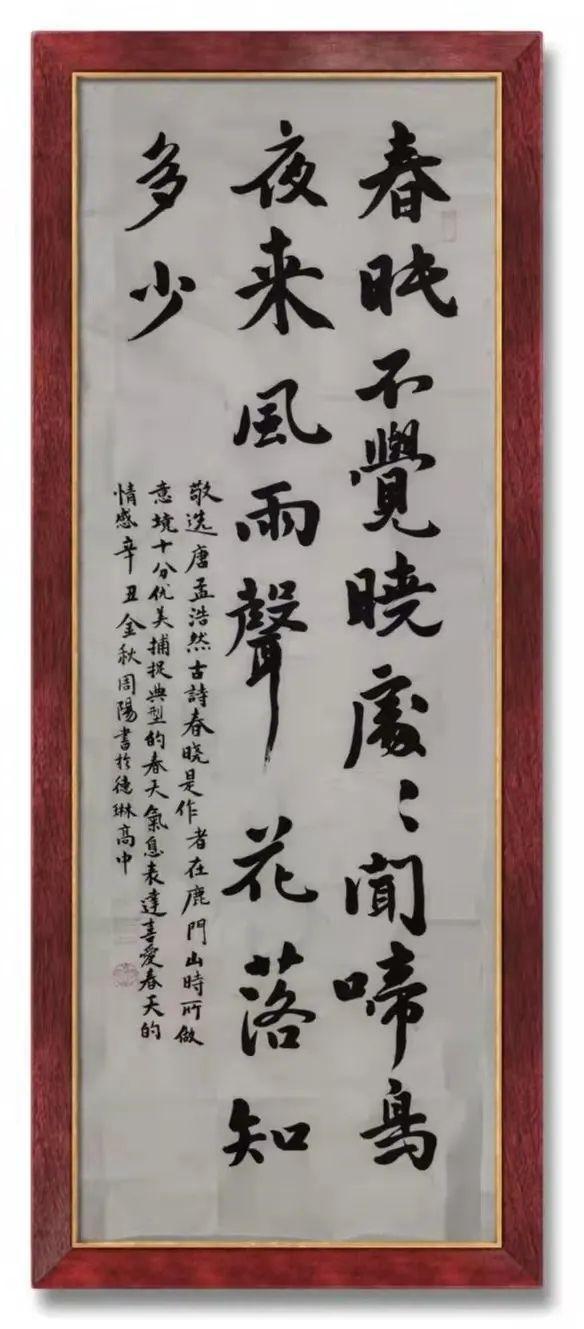 春眠不覺曉處〻聞啼鳥
夜来風雨聲花落知
多少
敬选唐孟浩然古詩春晓是作者在鹿門山時所做
意境十分优美捕捉典型的春天氣息表達喜愛春天的
情感辛丑金秋周陽書於德琳高中